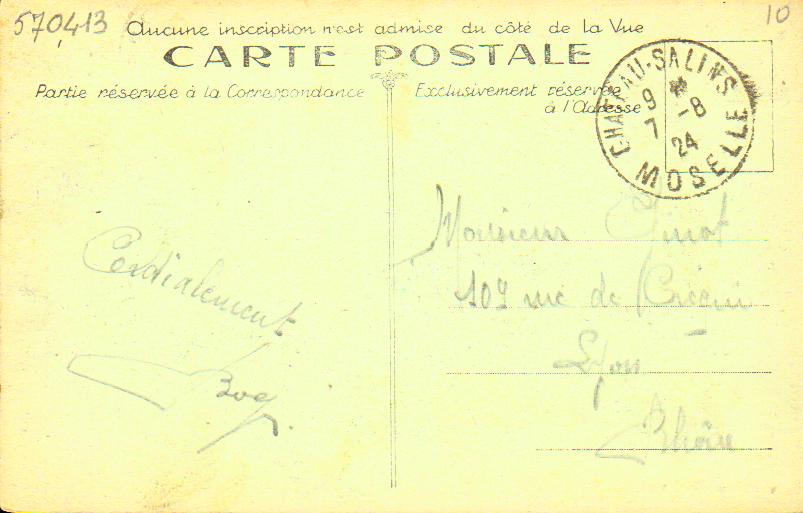 570413
10
Aucune inscription n'est admise du côté de la Vue
CARTE POSTALE
Partie réservée à la Correspondance
Exclusivement réservée
à l'Adresse
CHATEAU-SALINS
9 -8
7 24
MOSELLE
Cordialement
Monsieur
109 rue de
Lyon
Rhône